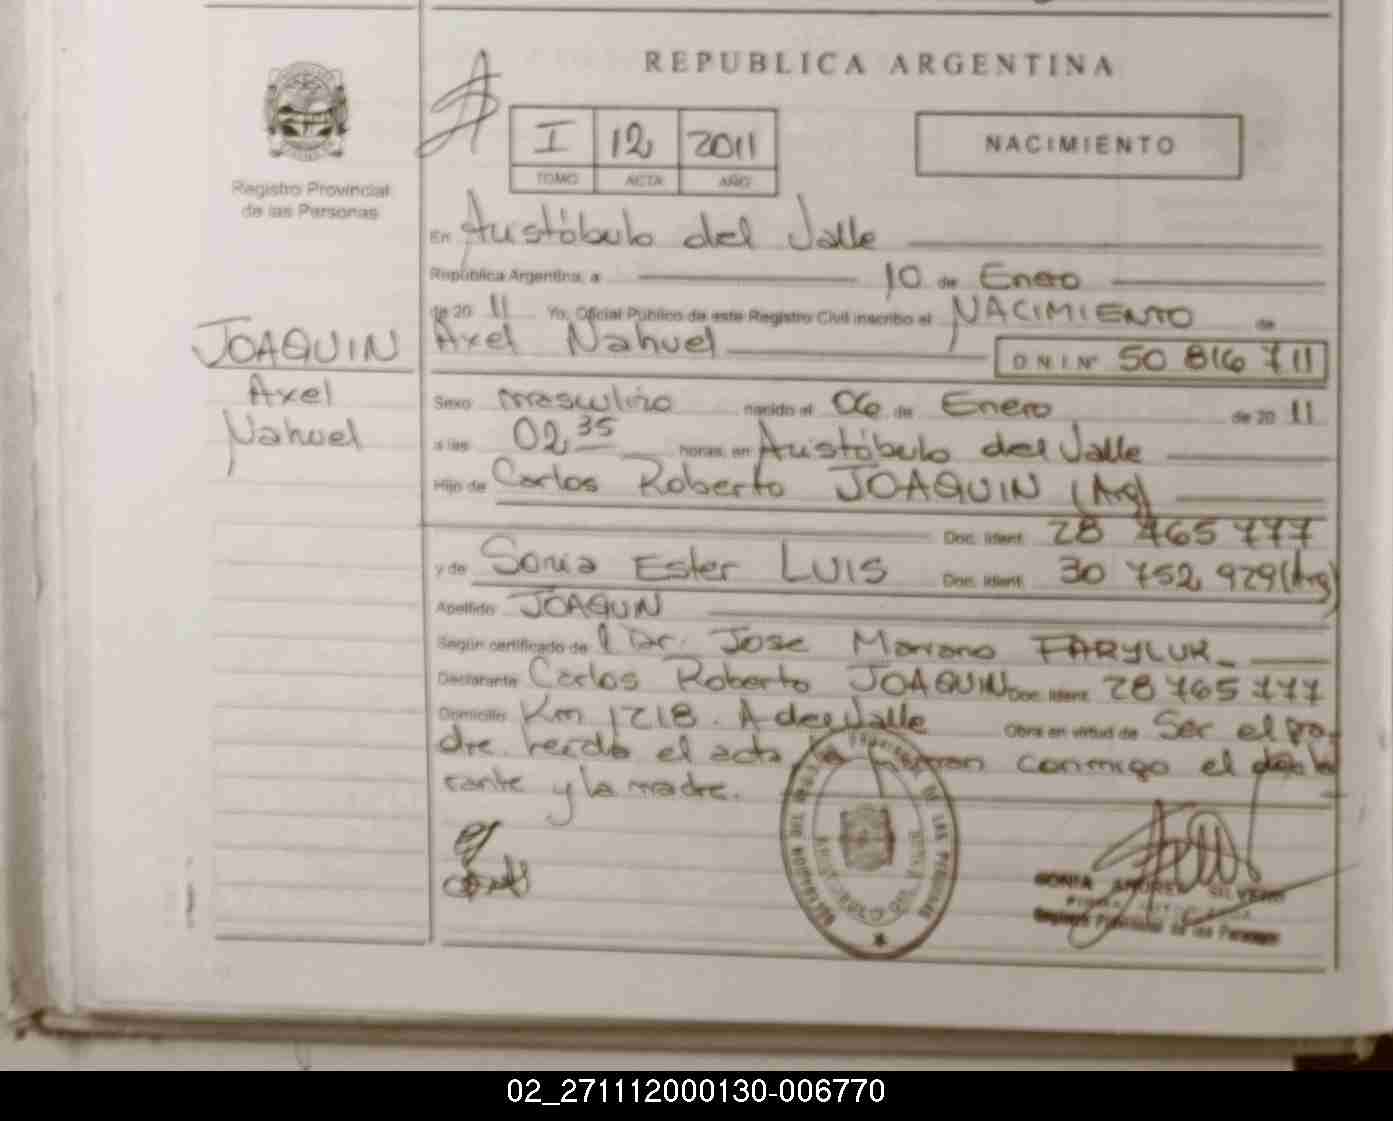 REPUBLICA ARGENTINA
I 12 2011
TOMO ACTA AÑO
NACIMIENTO
Registro Provincial
de las Personas
En Aristóbulo del Valle
República Argentina, a 10 de Enero
de 20 11 Yo, Oficial Público de este Registro Civil inscribo el NACIMIENTO de
Axel Nahuel
D N I Nº 50 816 711
JOAQUIN
Axel
Nahuel
Sexo masculino nacido el 06 de Enero de 20 11
a las 02,35 horas, en Aristóbulo del Valle
Hijo de Carlos Roberto JOAQUIN (Arg)
Doc. Ident. 28 765 777
y de Sonia Ester LUIS Doc. Ident. 30 752 929 (Arg)
Apellido JOAQUIN
Según certificado de l Dr. Jose Mariano
Declarante Carlos Roberto JOAQUIN Doc. Ident. 28 765 777
Domicilio Km 1218. A del Valle Obra en virtud de Ser el pa-
dre. leído el acta la firman conmigo el decla
rante y la madre.
SONIA
Registro Provincial de las Personas
02_271112000130-006770